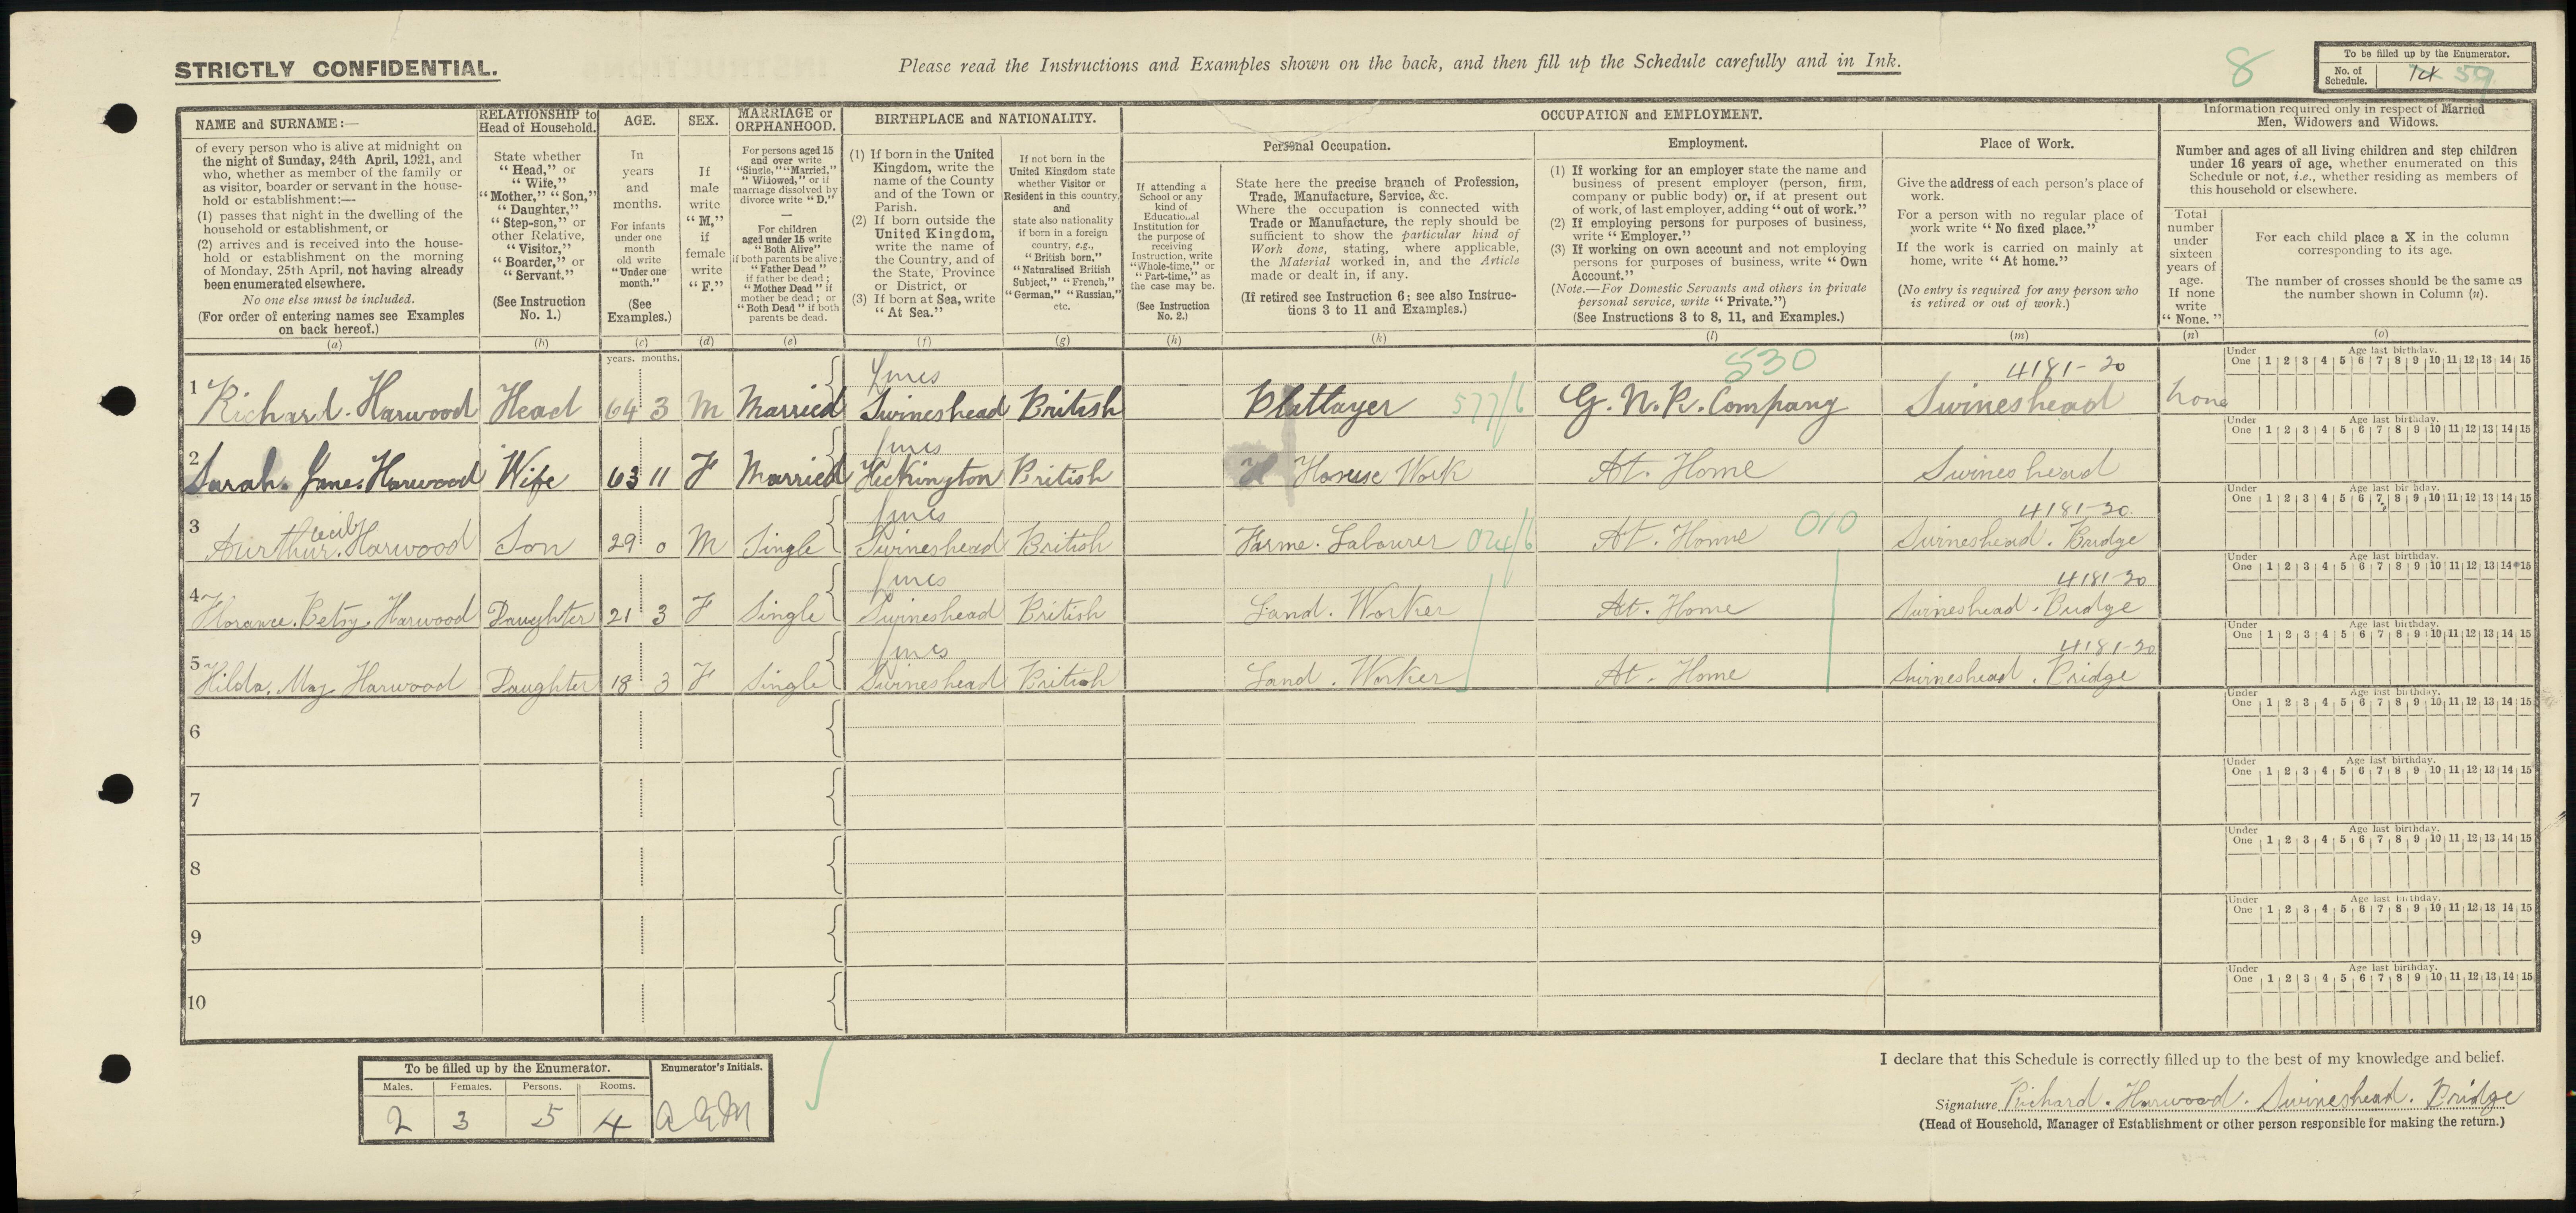 STRICTLY CONFIDENTIAL.
Please read the Instructions and Examples shown on the back, and then fill up the Schedule carefully and in Ink.
8
To be filled up by the Enumerator.
No. of Schedule. 59
NAME and SURNAME:—
of every person who is alive at midnight on
the night of Sunday, 24th April, 1921, and
who, whether as member of the family or
as visitor, boarder or servant in the house-
hold or establishment:—
(1) passes that night in the dwelling of the
household or establishment, or
(2) arrives and is received into the house-
hold or establishment on the morning
of Monday, 25th April, not having already
been enumerated elsewhere.
No one else must be included.
(For order of entering names see Examples
on back hereof.)
(a)
RELATIONSHIP to
Head of Household.
State whether
"Head," or
"Wife,"
"Mother," "Son,"
"Daughter,"
"Step-son," or
other Relative,
"Visitor,"
"Boarder," or
"Servant."
(See Instruction
No. 1.)
(b)
AGE.
In
years
and
months.
For infants
under one
month
old write
"Under one
month."
(See
Examples.)
(c)
SEX.
If
male
write
"M,"
if
female
write
"F."
(d)
MARRIAGE or
ORPHANHOOD.
For persons aged 15
and over write
"Single," "Married,"
"Widowed," or if
marriage dissolved by
divorce write "D."
—
For children
aged under 15 write
"Both Alive"
if both parents be alive;
"Father Dead"
if father be dead;
"Mother Dead" if
mother be dead; or
"Both Dead" if both
parents be dead.
(e)
BIRTHPLACE and NATIONALITY.
(1) If born in the United
Kingdom, write the
name of the County
and of the Town or
Parish.
(2) If born outside the
United Kingdom,
write the name of
the Country, and of
the State, Province
or District, or
(3) If born at Sea, write
"At Sea."
(f)
If not born in the
United Kingdom state
whether Visitor or
Resident in this country,
and
state also nationality
if born in a foreign
country, e.g.,
"British born,"
"Naturalised British
Subject," "French,"
"German," "Russian,"
etc.
(g)
OCCUPATION and EMPLOYMENT.
Personal Occupation.
If attending a
School or any
kind of
Educational
Institution for
the purpose of
receiving
Instruction, write
"Whole-time," or
"Part-time," as
the case may be.
(See Instruction
No. 2.)
(h)
State here the precise branch of Profession,
Trade, Manufacture, Service, &c.
Where the occupation is connected with
Trade or Manufacture, the reply should be
sufficient to show the particular kind of
Work done, stating, where applicable,
the Material worked in, and the Article
made or dealt in, if any.
(If retired see Instruction 6: see also Instruc-
tions 3 to 11 and Examples.)
(k)
Employment.
(1) If working for an employer state the name and
business of present employer (person, firm,
company or public body) or, if at present out
of work, of last employer, adding "out of work."
(2) If employing persons for purposes of business,
write "Employer."
(3) If working on own account and not employing
persons for purposes of business, write "Own
Account."
(Note.—For Domestic Servants and others in private
personal service, write "Private.")
(See Instructions 3 to 8, 11, and Examples.)
(l)
Place of Work.
Give the address of each person's place of
work.
For a person with no regular place of
work write "No fixed place."
If the work is carried on mainly at
home, write "At home."
(No entry is required for any person who
is retired or out of work.)
(m)
Information required only in respect of Married
Men, Widowers and Widows.
Number and ages of all living children and step children
under 16 years of age, whether enumerated on this
Schedule or not, i.e., whether residing as members of
this household or elsewhere.
Total
number
under
sixteen
years of
age.
If none
write
"None."
(n)
For each child place a X in the column
corresponding to its age.
The number of crosses should be the same as
the number shown in Column (n).
(o)
years. months.
Lincs 530 4181-20
1 Richard. Harwood Head 64 3 M Married Swineshead British Platlayer 577/6 G. N. R. Company Swineshead None
Under One Age last birthday. 1 2 3 4 5 6 7 8 9 10 11 12 13 14 15
Lincs
2 Sarah. Jane. Harwood Wife 63 11 F Married Heckington British House Work At. Home Swineshead
Under One Age last birthday. 1 2 3 4 5 6 7 8 9 10 11 12 13 14 15
Lincs 4181-20
3 Aurthur. Cecil Harwood Son 29 0 M Single Swineshead British Farme. Labourer 024/6 At. Home 010 Swineshead. Bridge
Under One Age last birthday. 1 2 3 4 5 6 7 8 9 10 11 12 13 14 15
Lincs 4181-20
4 Florance. Betsy. Harwood Daughter 21 3 F Single Swineshead British Land. Worker At. Home Swineshead. Bridge
Under One Age last birthday. 1 2 3 4 5 6 7 8 9 10 11 12 13 14 15
Lincs 4181-20
5 Hilda. May Harwood Daughter 18 3 F Single Swineshead British Land. Worker At. Home Swineshead. Bridge
Under One Age last birthday. 1 2 3 4 5 6 7 8 9 10 11 12 13 14 15
6
Under One Age last birthday. 1 2 3 4 5 6 7 8 9 10 11 12 13 14 15
7
Under One Age last birthday. 1 2 3 4 5 6 7 8 9 10 11 12 13 14 15
8
Under One Age last birthday. 1 2 3 4 5 6 7 8 9 10 11 12 13 14 15
9
Under One Age last birthday. 1 2 3 4 5 6 7 8 9 10 11 12 13 14 15
10
Under One Age last birthday. 1 2 3 4 5 6 7 8 9 10 11 12 13 14 15
To be filled up by the Enumerator.
Males. Females. Persons. Rooms.
2 3 5 4
Enumerator's Initials.
I declare that this Schedule is correctly filled up to the best of my knowledge and belief.
Signature Richard. Harwood. Swineshead. Bridge
(Head of Household, Manager of Establishment or other person responsible for making the return.)